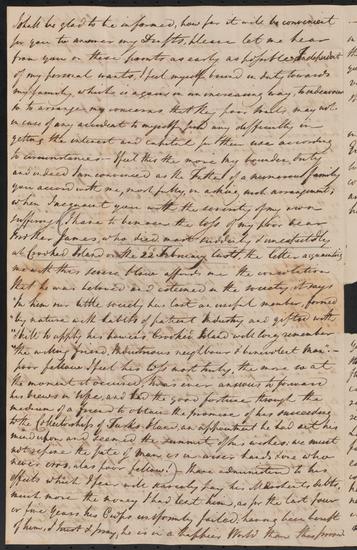 I shall be glad to be informed, how far it will be convenient
for you to answer my Drafts, please let me hear
from you on these points as early as possible. Independent
of my personal wants, I feel myself bound in duty towards
my family, which is again in an increasing way, to endeavour
so to arrange my concerns that the poor souls may not
in case of any accident to myself find any difficulty in
getting the interest and capital for their use according
to circumstances. I feel this the more my bounden duty
and indeed I am convinced as the Father of a numerous family
you accord with me, most fully, in asking such arrangement,
when I acquaint you with the severity of my own
suffering. I have to bemoan the loss of my poor dear
Brother James, who died most suddenly & unexpectedly
at Crooked Island on the 22 February last, the letter acquainting
me with this severe blow affords me the consolation
that he was beloved and esteemed in the society, it says
"In him our little society has lost a useful member, formed
"by nature with habits of patient Industry and gifted with
"skill to apply his powers Crooked Island will long remember
"the willing friend, Industrious neighbour & benevolent man.—
poor fellow I feel his loss most truly, the more so as at
the moment it occurred, I was ever anxious to forward
his views in life, and had the good fortune through the
medium of a friend to obtain the promise of his succeeding
to the Collectorship of Turks Island, an appointment he had set his
mind upon and seemed the summit of his wishes. we must
not repine the fate of man is in wiser hands, & one who
never errs. alas poor fellow! I have administered to his
effects which I fear will scarcely pay his Merchants debts,
much more the money I had lent him, as for the last four
or five Years his Crops uniformly failed, having been bereft
of them, I trust & pray, he is in a happier World than this proved